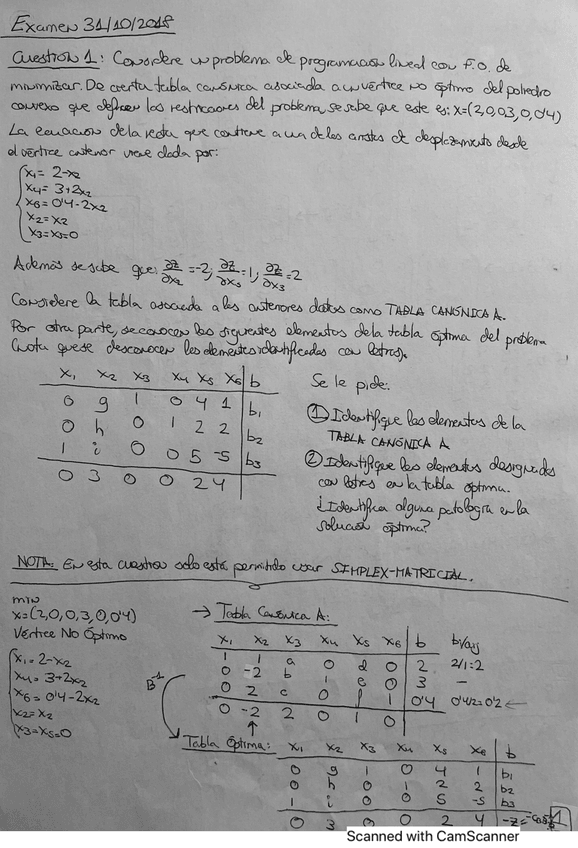 Examen 31/10/2018
Cuestión 1: Considere un problema de programación lineal con F.O. de
minimizar. De cierta tabla canónica asociada a un vértice no óptimo del poliedro
convexo que definen las restricciones del problema se sabe que este es: X=(2,0,0,3,0,0'4)
La ecuación de la recta que contiene a una de las aristas de desplazamiento desde
el vértice anterior viene dada por:
x1 = 2-x2
x4 = 3+2x2
x6 = 0'4-2x2
x2 = x2
x3=x5=0
Además se sabe que: ∂z/∂x2 = -2; ∂z/∂x5 = 1; ∂z/∂x3 = 2
Considere la tabla asociada a los anteriores datos como TABLA CANÓNICA A.
Por otra parte, se conocen los siguientes elementos de la tabla óptima del problema
(nota que se desconocen los elementos identificados con letras).
x1 x2 x3 x4 x5 x6 b
0 g 1 0 4 1 b1
0 h 0 1 2 2 b2
1 i 0 0 5 -5 b3
0 3 0 0 2 4
Se le pide:
① Identifique los elementos de la
TABLA CANÓNICA A
② Identifique los elementos designados
con letras en la tabla óptima.
¿Identifica alguna patología en la
solución óptima?
NOTA: En esta cuestión solo está permitido usar SIMPLEX-MATRICIAL.
min
x=(2,0,0,3,0,0'4)
Vértice No Óptimo
x1 = 2-x2
x4 = 3+2x2
x6 = 0'4-2x2
x2 = x2
x3=x5=0
→ Tabla Canónica A:
x1 x2 x3 x4 x5 x6 b b/aij
1 1 a 0 d 0 2 2/1=2
0 -2 b 1 e 0 3 —
0 2 c 0 f 1 0'4 0'4/2=0'2 ←
0 -2 2 0 1 0
B-1
Tabla Óptima:
x1 x2 x3 x4 x5 x6 b
0 g 1 0 4 1 b1
0 h 0 1 2 2 b2
1 i 0 0 5 -5 b3
0 3 0 0 2 4 -z=
1
Scanned with CamScanner